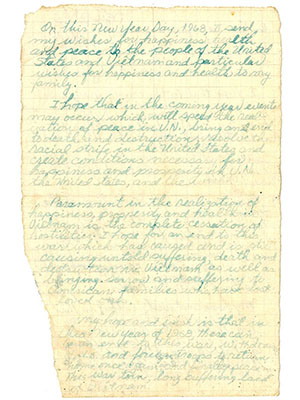 On this New Year Day, 1968, I send
my wishes for happiness, health
and peace to the people of the United
States and Vietnam and particular
wishes for happiness and health to my
family.
I hope that in the coming year events
may occur which will speed the
of peace in V.N., bring an end
to death and destruction, resolve
racial strife in the United States and
create conditions necessary for
happiness and prosperity in V.N.
the United States, and the
Paramount in the realization of
happiness, prosperity and health in
Vietnam is the complete cessation of
hostilities. I hope for an end to this
war which has caused and is still
causing untold suffering, death and
destruction in Vietnam as well as
bringing sorrow and suffering to
American families who have lost
loved ones.
My hope and wish is that in
New Year of 1968, there can
an end to this war, withdrawal
and foreign troops to return
home once again and
this war torn, long suffering land
Vietnam.